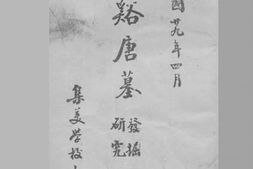 國廿九年四月
谿唐墓
發掘
研究
集美學校